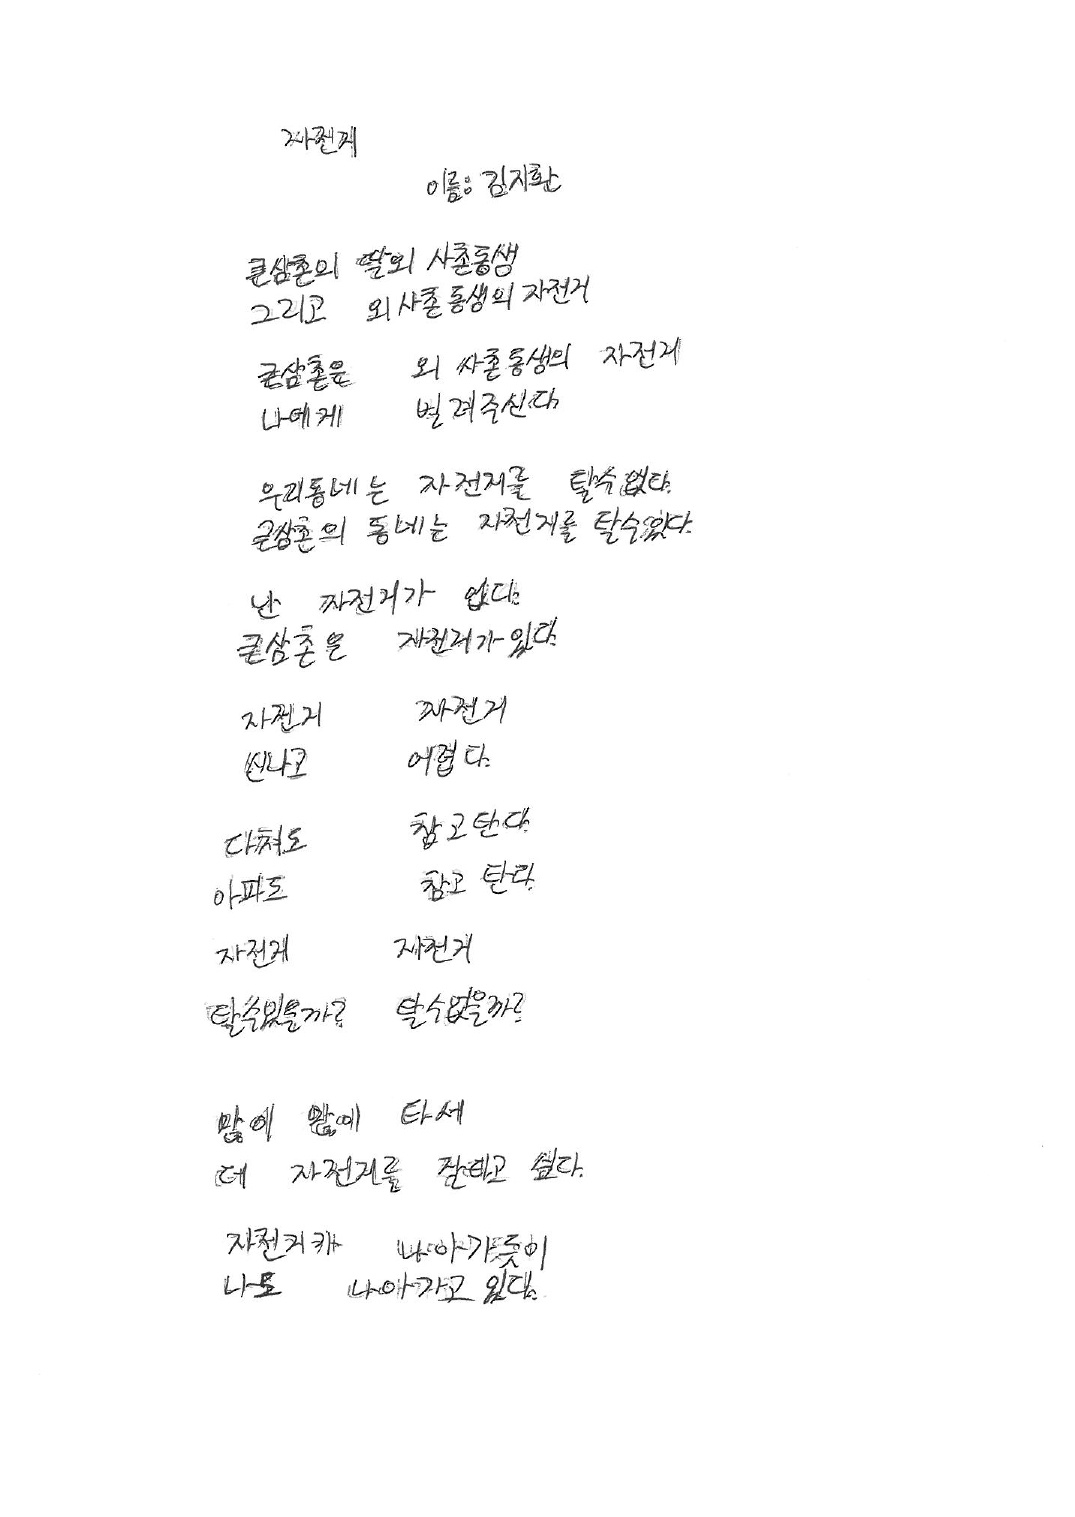 자전거
이름: 김지환
큰삼촌의 딸외 사촌동생
그리고 외사촌동생의 자전거
큰삼촌은 외 사촌동생의 자전거
나에게 빌려주신다.
우리동네는 자전거를 탈수 없다.
큰삼촌의 동네는 자전거를 탈수있다.
난 자전거가 없다.
큰삼촌은 자전거가 있다.
자전거 자전거
신나고 어렵다.
다쳐도 참고탄다.
아파도 참고 탄다.
자전거 자전거
탈수있을까? 탈수없을까?
많이 많이 타서
더 자전거를 잘타고 싶다.
자전거가 나아가듯이
나도 나아가고 있다.